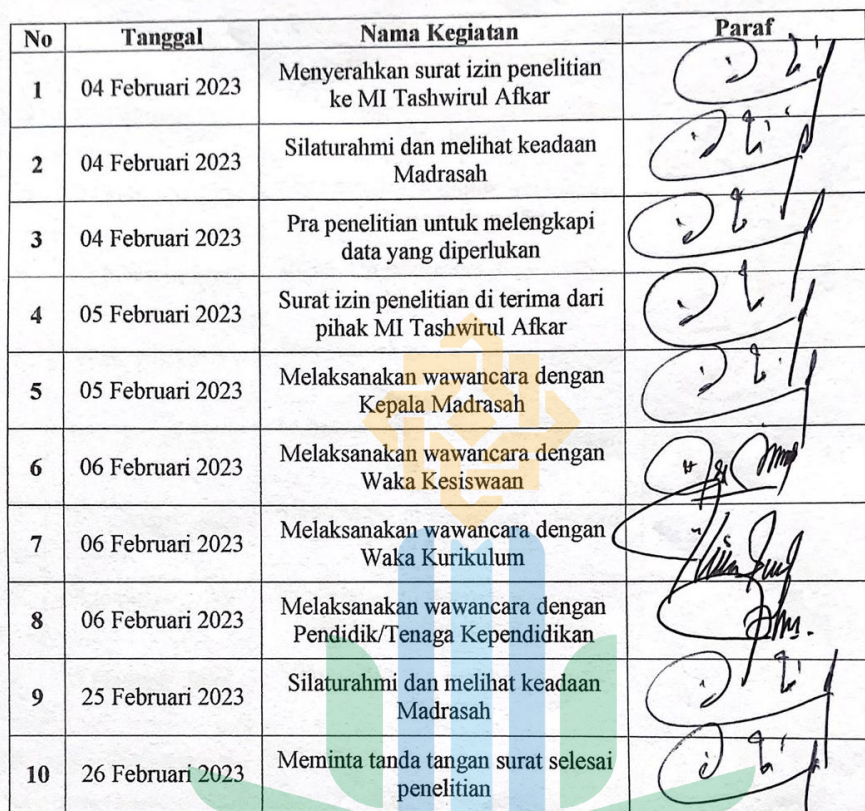 No Tanggal Nama Kegiatan Paraf
1 04 Februari 2023 Menyerahkan surat izin penelitian
ke MI Tashwirul Afkar
2 04 Februari 2023 Silaturahmi dan melihat keadaan
Madrasah
3 04 Februari 2023 Pra penelitian untuk melengkapi
data yang diperlukan
4 05 Februari 2023 Surat izin penelitian di terima dari
pihak MI Tashwirul Afkar
5 05 Februari 2023 Melaksanakan wawancara dengan
Kepala Madrasah
6 06 Februari 2023 Melaksanakan wawancara dengan
Waka Kesiswaan
7 06 Februari 2023 Melaksanakan wawancara dengan
Waka Kurikulum
8 06 Februari 2023 Melaksanakan wawancara dengan
Pendidik/Tenaga Kependidikan
9 25 Februari 2023 Silaturahmi dan melihat keadaan
Madrasah
10 26 Februari 2023 Meminta tanda tangan surat selesai
penelitian